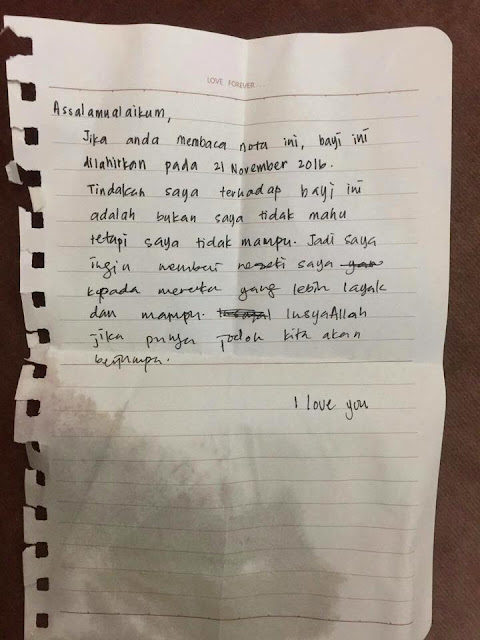 LOVE FOREVER
Assalamualaikum,
Jika anda membaca nota ini, bayi ini
dilahirkan pada 21 November 2016.
Tindakan saya terhadap bayi ini
adalah bukan saya tidak mahu
tetapi saya tidak mampu. Jadi saya
ingin memberi rezeki saya yan
kepada mereka yang lebih layak
dan mampu. InsyaAllah
jika punya jodoh kita akan
berjumpa.
I love you